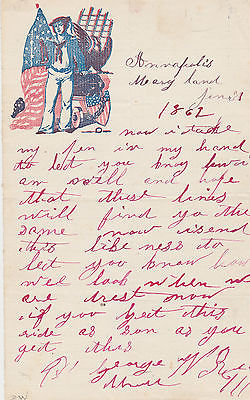 Annapolis
Mary land
June 1
1862
now i take
my pen in my hand
to let you know
am well and hope
that these lines
will find yo the
same now i send
this like ness to
let you know how
we look when we
are drest now
if you get this
rite as son as you
get this
George W